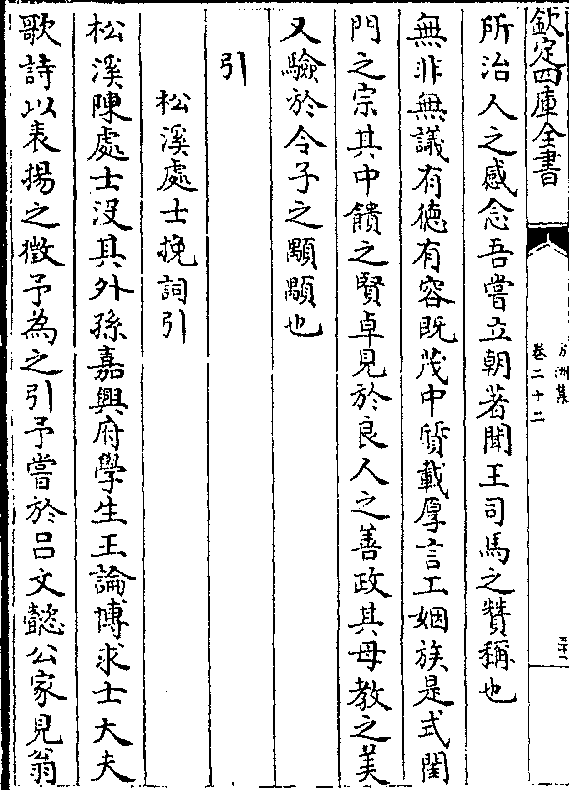 欽定四庫全書
方洲集
卷二十二
所治人之感念吾嘗立朝著聞王司馬之贊稱也
無非無議有德有容既茂中質載厚言工姻族是式閨
門之宗其中饋之賢卓見於良人之善政其母教之美
又驗於令子之顒顒也
引
松溪處士挽詞引
松溪陳處士沒其外孫嘉興府學生王論博求士大夫
歌詩以表揚之徵予為之引予嘗於呂文懿公家見翁